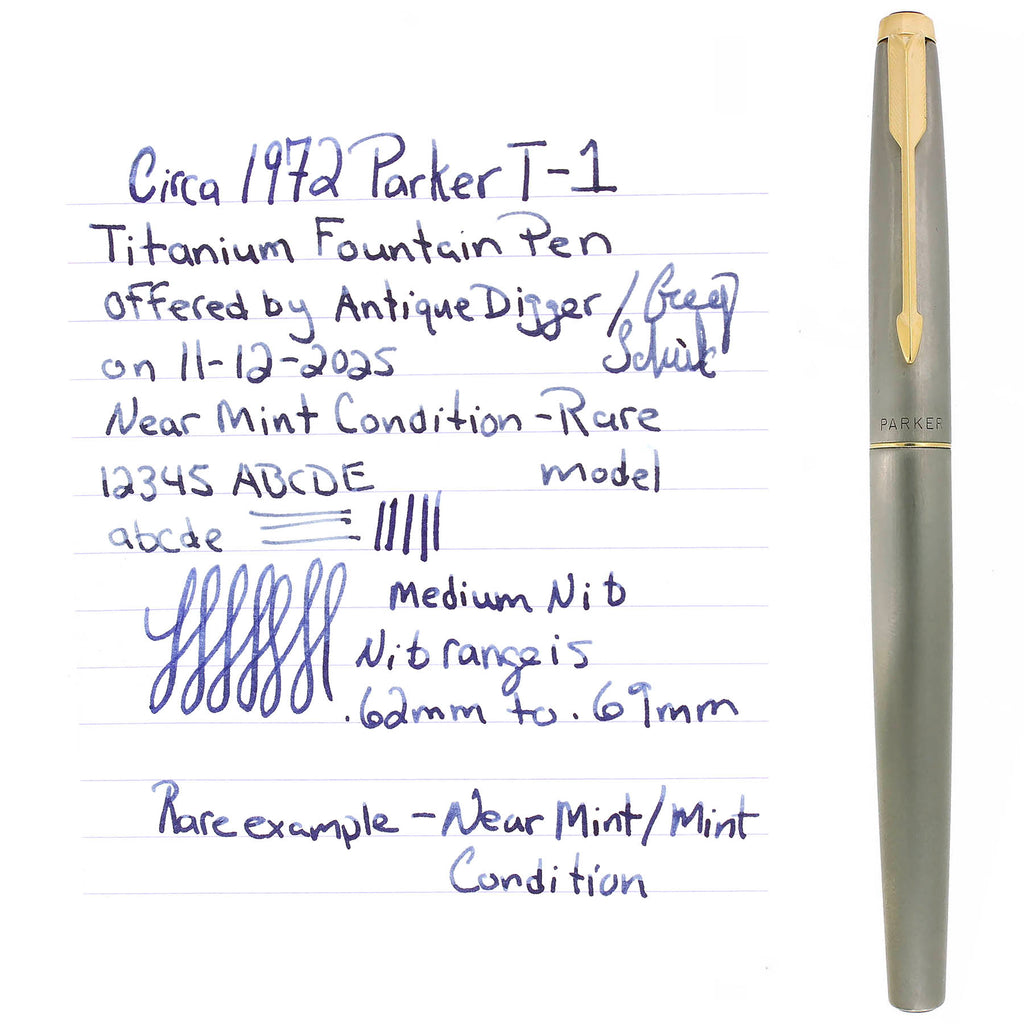 Circa 1972 Parker T-1
Titanium Fountain Pen
offered by Antique Digger /
on 11-12-2025
Near Mint Condition - Rare
model
12345 ABCDE
abcde
Medium Nib
Nib range is
.62mm to .69mm
Rare example - Near Mint/Mint
Condition
PARKER